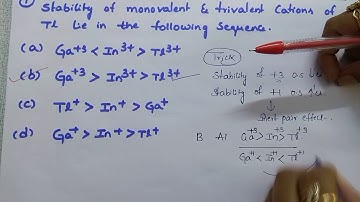 Stability of monovalent & trivalent Cations of
Tl lie in the following Sequence.
(a) Ga+3 < In3+ > Tl3+
(b) Ga+3 > In3+ > Tl3+
(c) Tl+ > In+ > Ga+
(d) Ga+ > In+ > Tl+
Trick
Stability of +3 O.S
Stability of +1 O.S
Inert pair effect
B Al Ga+3 > In+3 > Tl+3
Ga+1 < In+1 < Tl+1